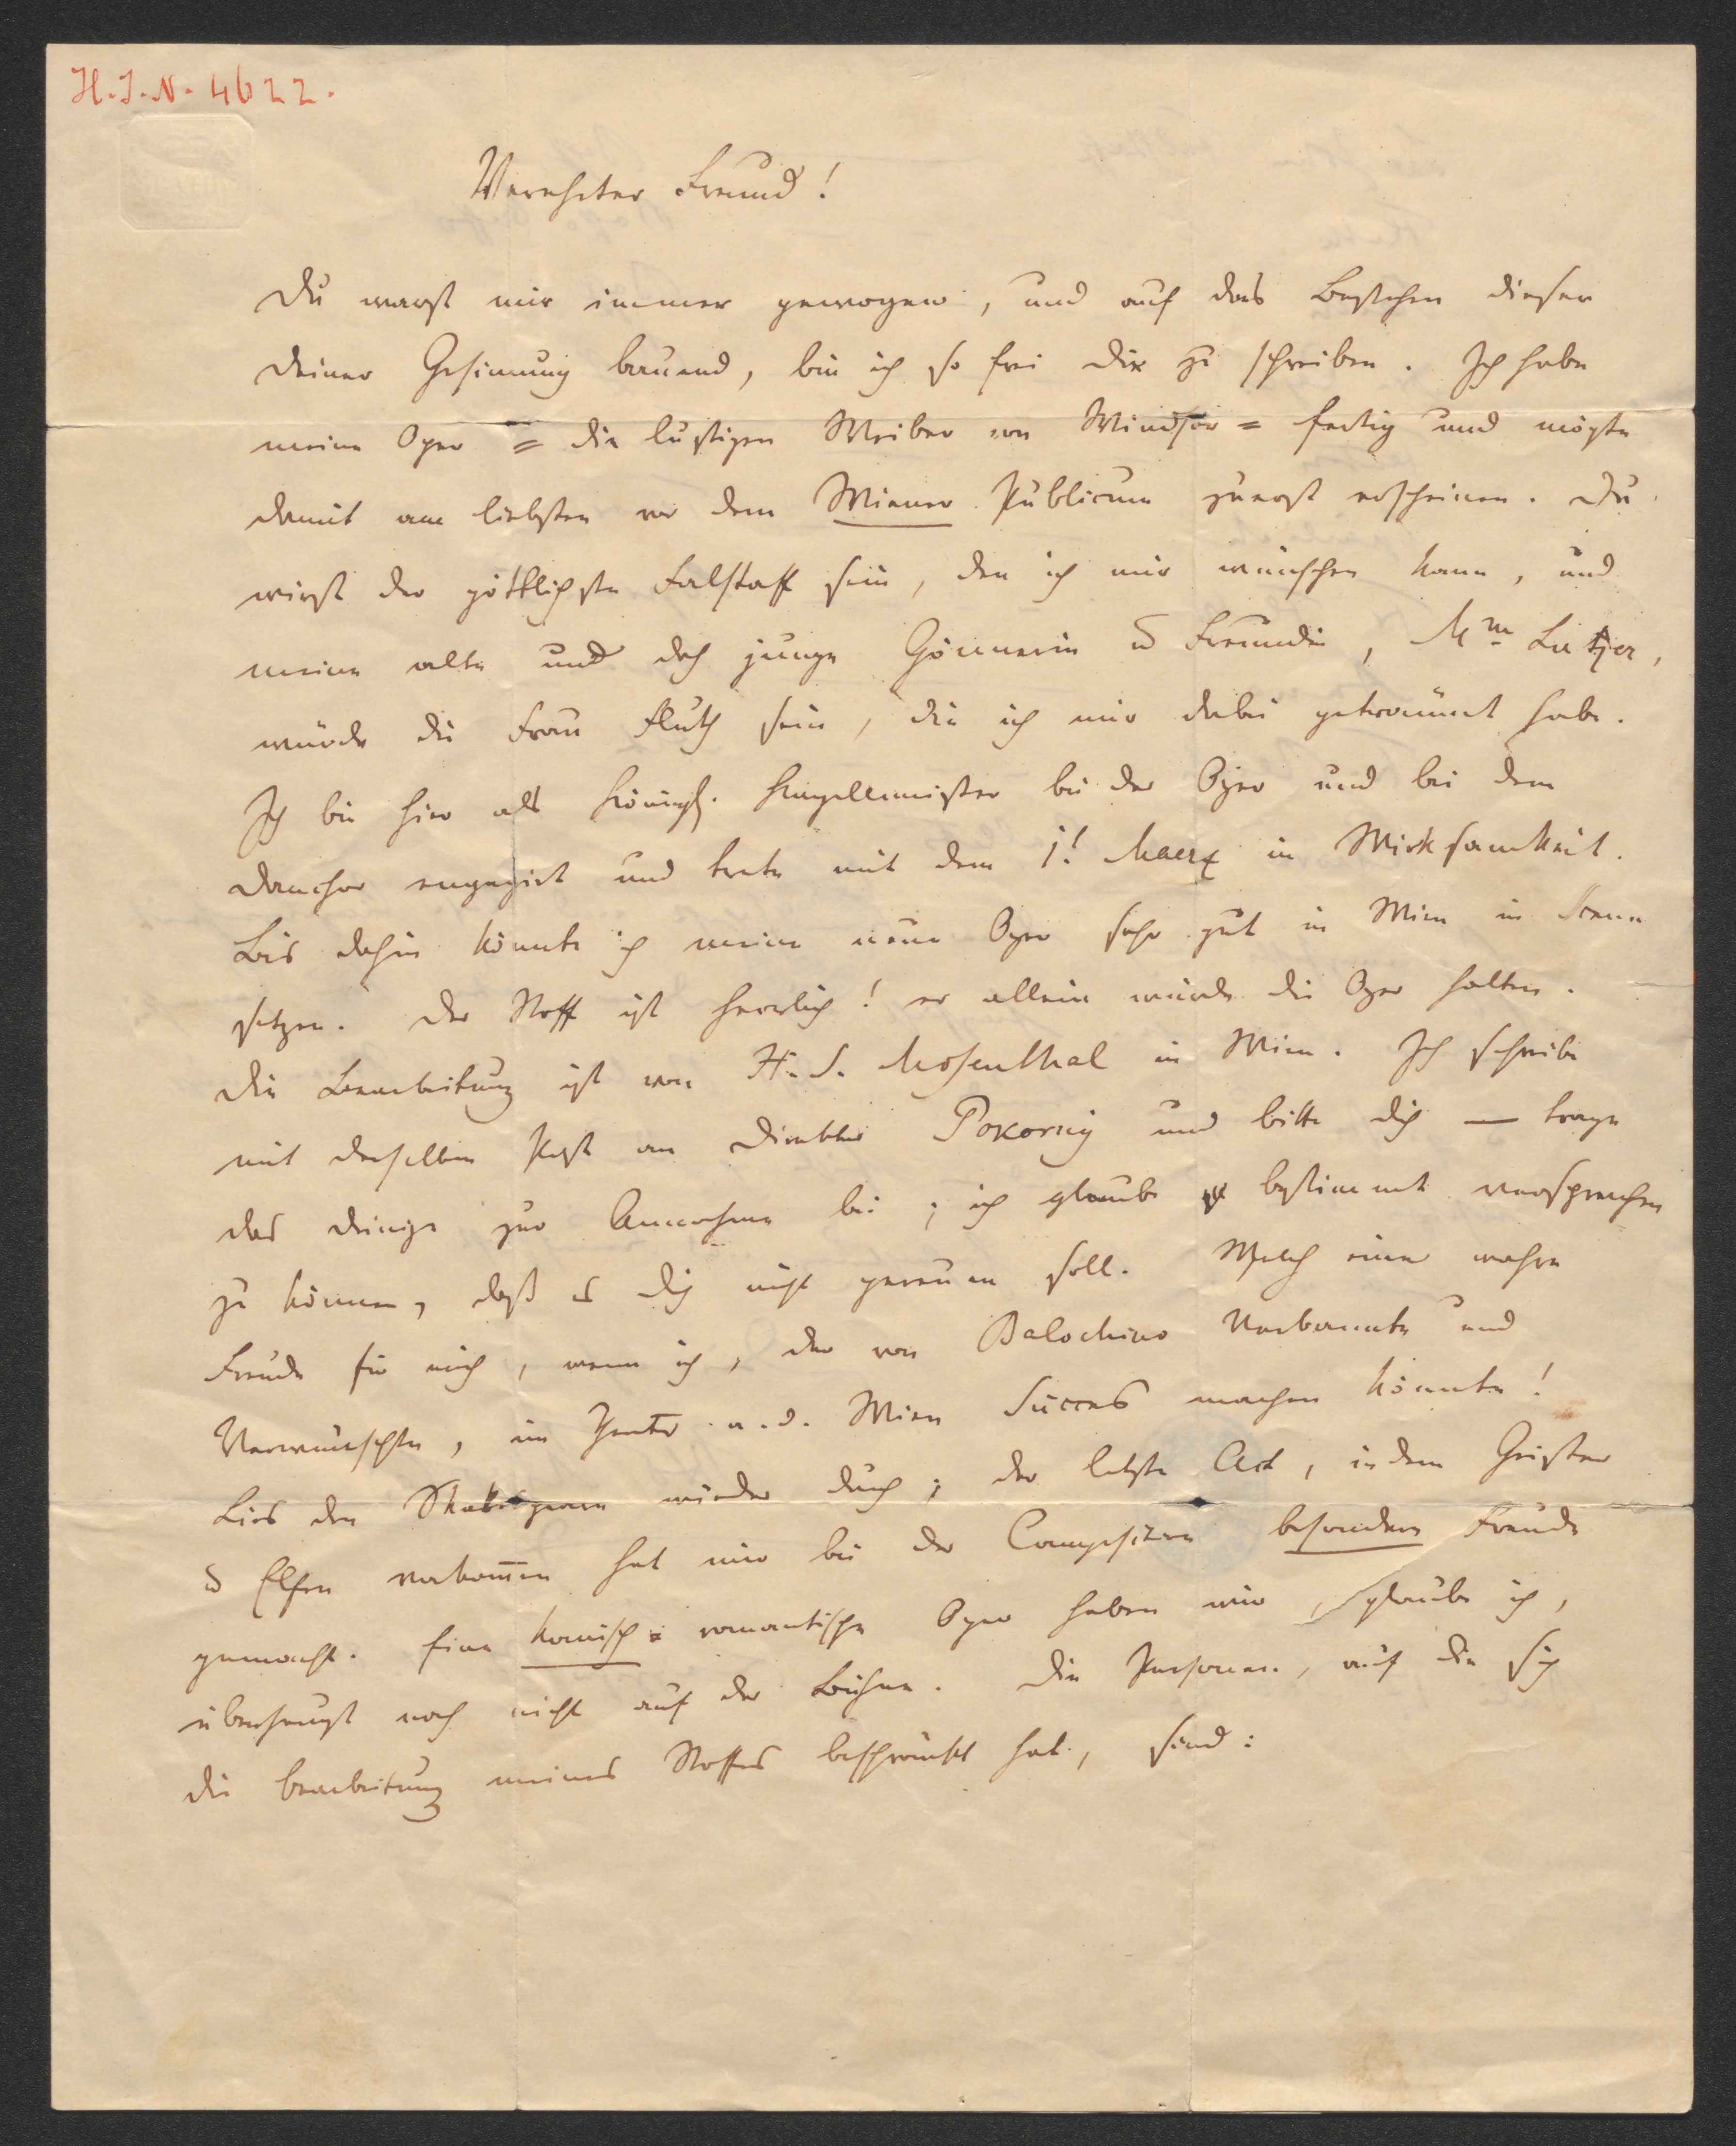 H.I.N. 4622.
Verehrter Freund!
Du warst mir immer gewogen, und auf das Bestehen dieser
Deiner Gesinnung bauend, bin ich so frei Dir zu schreiben. Ich habe
meine Oper = die lustigen Weiber von Windsor = fertig und mögte
damit am liebsten vor dem Wiener Publicum zuerst erscheinen. Du
wirst der göttlichste Falstaff sein, den ich mir wünschen kann, und
meine alte und doch junge Gönnerin u Freundin, Mm Lutzer,
würde die Frau Fluth sein, die ich mir dabei geträumt habe.
Ich bin hier als Königl. Kapellmeister bei der Oper und bei dem
Domchor engagirt und trete mit dem 1t Maerz in Wirksamkeit.
Bis dahin könnte ich meine neue Oper sehr gut in Wien in Scene
setzen. Der Stoff ist herrlich! er allein würde die Oper halten.
Die Bearbeitung ist von H. S. Mosenthal in Wien. Ich schreibe
mit derselben Post an Direktor Pokorny und bitte Dich — trage
das Deinige zur Annahme bei; ich glaube bestimmt versprechen
zu können, daß es Dich nicht gereuen soll. Welch eine wahre
Freude für mich, wenn ich, der von Balochino Verbannte und
Verwünschte, im Theater a. d. Wien Succes machen könnte!
Lies den Shakespeare wieder durch; der letzte Act, in dem Geister
u Elfen vorkommen hat mir bei der Composizion besondere Freude
gemacht. Eine komisch = romantische Oper haben wir, glaube ich,
überhaupt noch nicht auf der Bühne. Die Personen, auf die sich
die Bearbeitung meines Stoffes beschränkt hat, sind: